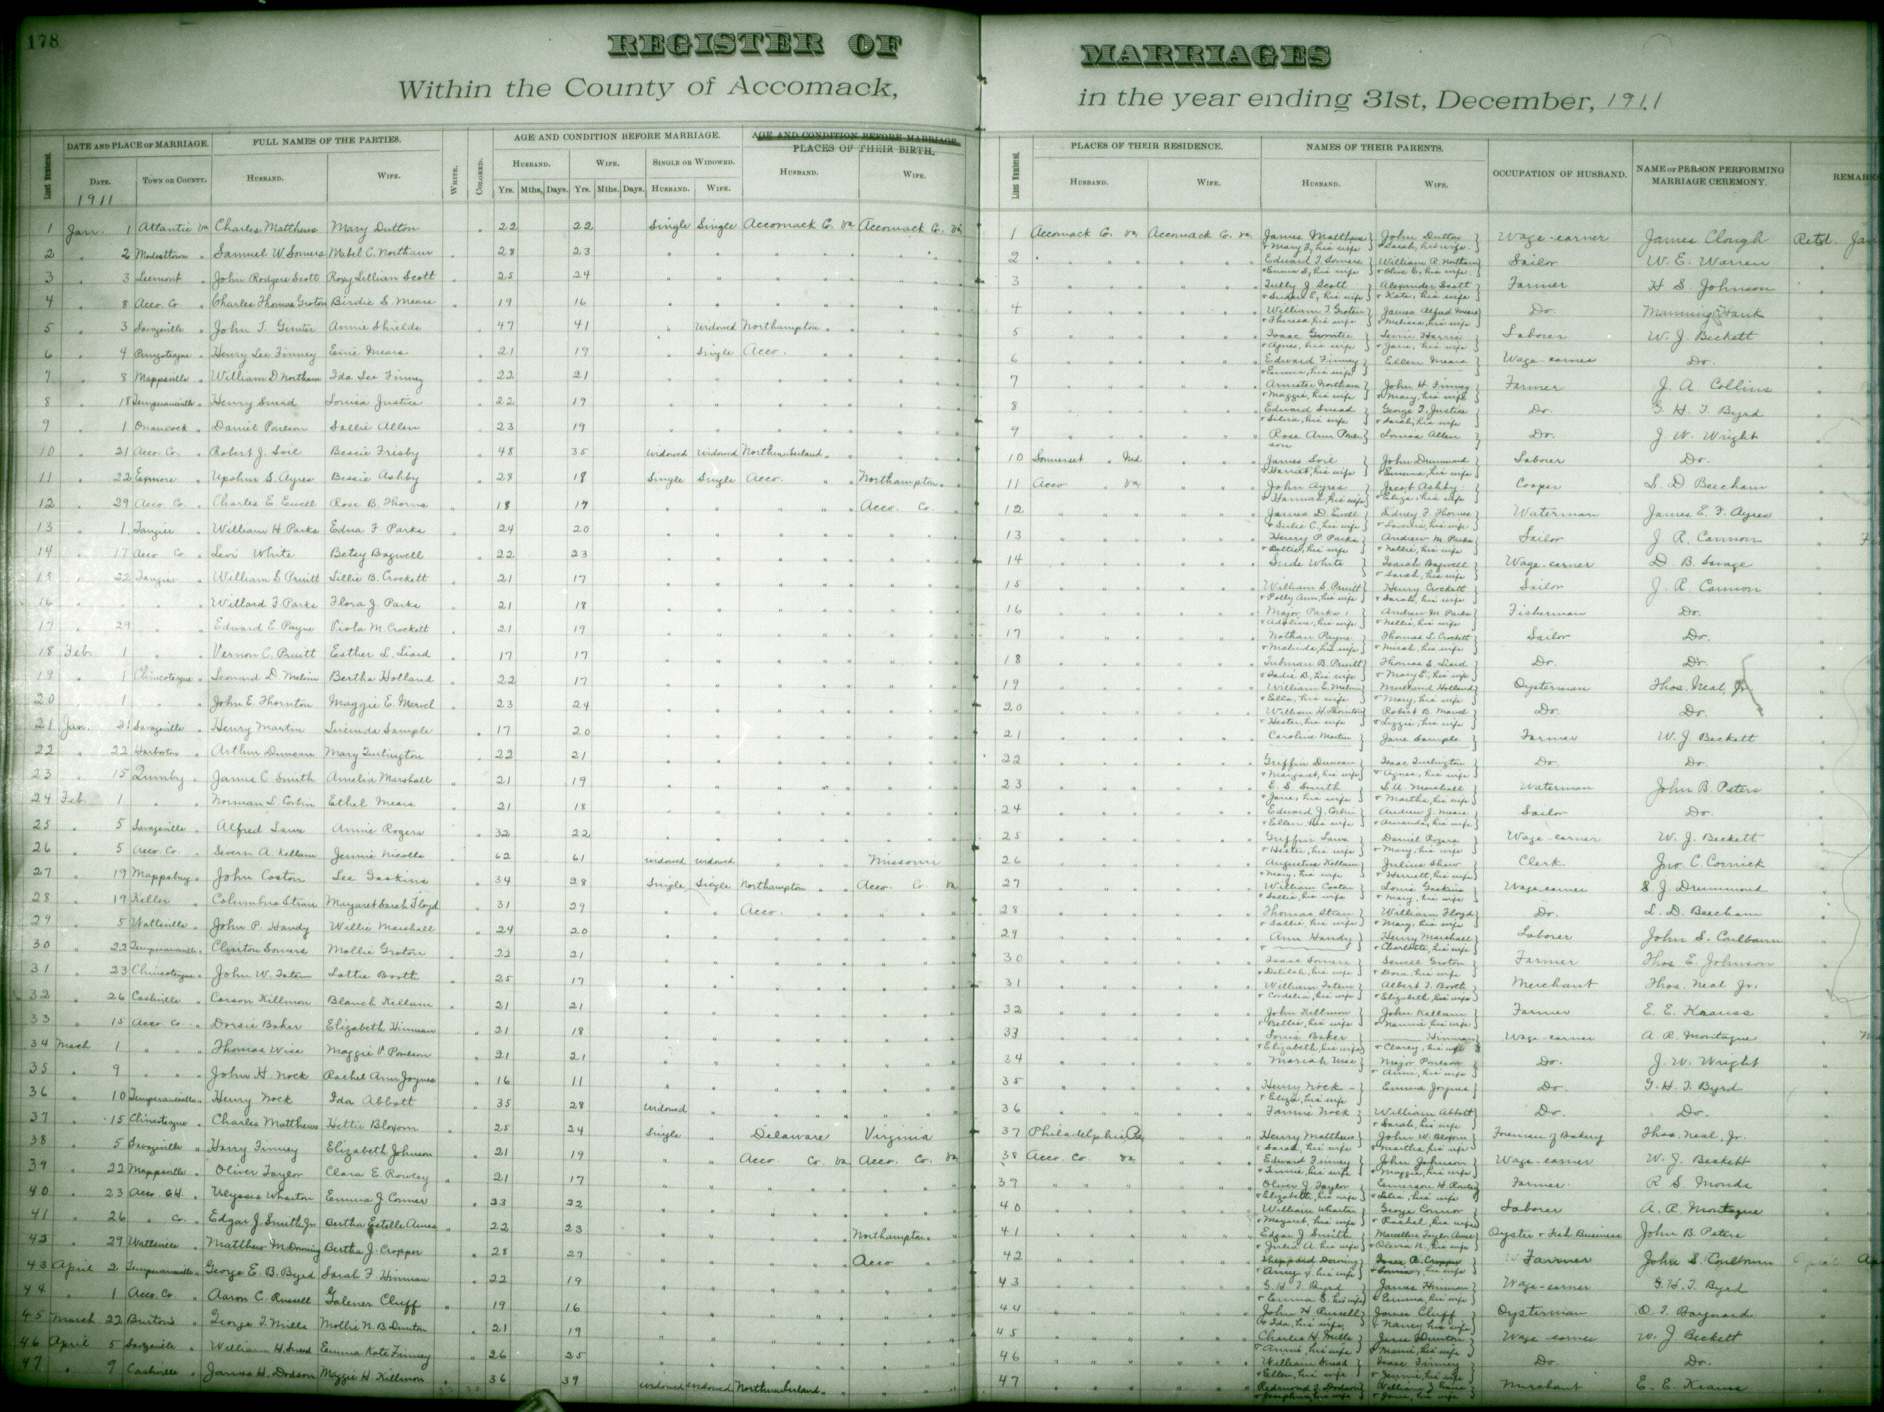 178
REGISTER OF MARRIAGES
Within the County of Accomack, in the year ending 31st, December, 1911
DATE AND PLACE OF MARRIAGE. FULL NAMES OF THE PARTIES. AGE AND CONDITION BEFORE MARRIAGE. AGE AND CONDITION BEFORE MARRIAGE. PLACES OF THEIR BIRTH. PLACES OF THEIR RESIDENCE. NAMES OF THEIR PARENTS. OCCUPATION OF HUSBAND. NAME OF PERSON PERFORMING MARRIAGE CEREMONY. REMARKS
DATE. TOWN OR COUNTY. HUSBAND. WIFE. WHITE. COLORED. HUSBAND. WIFE. SINGLE OR WIDOWED. HUSBAND. WIFE. HUSBAND. WIFE. HUSBAND. WIFE.
1911 Yrs. Mths. Days. Yrs. Mths. Days. HUSBAND. WIFE.
1 Jan. 1 Atlantic Va Charles Matthews Mary Dutton 22 22 Single Single Accomack C. Va Accomack C. Va 1 Accomack C. Va Accomack C. Va James Matthews & Mary J, his wife John Dutton & Sarah, his wife Wage-earner James Clough Retd. Jan
2 " 2 Modesttown " Samuel W. Somers Mabel C. Northam 28 23 2 Edward T. Somers & Emma S, his wife William R Northam & Olive E, his wife Sailor W. E. Warren
3 " 3 Leemont " John Rodgers Scott Roxy Lillian Scott 25 24 3 Tully J Scott & Susan E, his wife Alexander Scott & Kate, his wife Farmer H S. Johnson
4 " 8 Acco. Co Charles Thomas Groton Birdie S. Mears 19 16 4 William T. Groton & Theresa, his wife James Alfred Mears & Melissa, his wife Do. Manning Hank
5 " 3 Savageville " John T. Gunter Annie Shields 47 41 " widowed Northampton " 5 & Agnes, his wife & Jane, his wife Laborer W. J. Beckett
6 " 4 Pungoteague " Henry Lee Finney Evie Mears 21 19 " Single Acco. 6 Edward Finney & Emma, his wife Ellen Mears Wage-earner Do.
7 " 8 Mappsville " William D Northam Ida Lee Finney 22 21 7 & Maggie, his wife John H. Finney & Mary, his wife Farmer J. A Collins
8 " 18 Temperanceville " Henry Snead Louisa Justice 22 19 8 Edward Snead George T. Justice & Sarah, his wife Do. G. H. T Byrd
9 " 1 Onancock " Daniel Poulson Sallie Allen 23 19 9 Rose Ann Poulson Louisa Allen Do. J W. Wright
10 " 21 Acco. Co. " Robert J. Soil Bessie Frisby 48 35 widowed widowed Northumberland 10 Somerset Md. & Harriet, his wife John Drummond & Emma, his wife Laborer Do.
11 " 22 Exmore " Upshur S. Ayres Bessie Ashby 28 18 Single Single Acco. Northampton 11 Acco Va John Ayres & Hannah, his wife Jacob Ashby & Eliza, his wife Cooper L. D Beecham
12 " 29 Acco Co. " Charles E Ewell Rose B. Thornes 18 17 Acco. Co. 12 James D. Ewell & Julie C., his wife Sidney F. Thornes & Lavinia, his wife Waterman James E. T. Ayres
13 " 1 Tangier " William H Parks Edna F Parks 24 20 13 Henry P. Parks Andrew M. Parks & Nellie, his wife Sailor J. R. Cannon
14 " 17 Acco Co " Levi White Betsy Bagwell 22 23 14 White Isaiah Bagwell & Sarah, his wife Wage-earner D B. Savage
15 " 22 Tangier " William S Pruitt Lillie B. Crockett 21 17 15 William S. Pruitt & Polly Ann, his wife Henry Crockett & Sarah, his wife Sailor J. R Cannon
16 " " " Willard F. Parks Flora J. Parks 21 18 16 Major Parks & Adaline, his wife Andrew M. Parks & Nellie, his wife Fisherman Do.
17 " 29 " Edward E. Payne Viola M. Crockett 21 19 17 Nathan Payne & Malinda, his wife Thomas L. Crockett Sailor Do.
18 Feb. 1 " Vernon C. Pruitt Esther L. Liard 17 17 18 Tubman B. Pruitt & Sadie B., his wife Thomas S. Liard & Mary E., his wife Do. Do.
19 " 1 Chincoteague " Leonard D. Melvin Bertha Holland 22 17 19 William E. Melvin & Ella, his wife Holland & Mary, his wife Oysterman Thos. Neal, Jr.
20 1 " John E. Thornton Maggie E. Marvel 23 24 20 William H. Thornton & Hester, his wife Robert B. Marvel & Lizzie, his wife Do. Do.
21 Jan. 21 Savageville " Henry Martin Lucinda Sample 17 20 21 Caroline Martin Jane Sample Farmer W. J Beckett
22 " 22 Harborton " Arthur Duncan Mary Turlington 22 21 22 Griffin Duncan & Margaret, his wife Isaac Turlington & Agnes, his wife Do. Do.
23 15 Quinby " James C. Smith Amelia Marshall 21 19 23 E. S. Smith & Jane, his wife S. A. Marshall & Martha, his wife Waterman John B. Peters
24 Feb. 1 " Norman L. Corbin Ethel Mears 21 18 24 Edward J. Corbin & Ellen, his wife Andrew J. Mears & Amanda, his wife Sailor Do.
25 5 Savageville " Alfred Laws Annie Rogers 32 22 25 Griffin Laws & Hester, his wife Daniel Rogers & Mary, his wife Wage-earner W. J. Beckett
26 " 5 Acco Co. Severn A. Kellam Jennie Nicolls 62 61 widowed widowed Missouri 26 Augustus Kellam & Mary, his wife Julius Shaw & Harriett, his wife Clerk Jno. C. Cornick
27 " 19 Mappsburg " John Coston Lee Gaskins 34 28 Single Single Northampton Acco. Co. Va 27 William Coston & Sallie, his wife Louis Gaskins & Mary, his wife Wage-earner S. J. Drummond
28 " 19 Keller " Columbus Stran Margaret Sarah Floyd 31 29 Acco. 28 Thomas Stran & Sallie, his wife William Floyd & Mary, his wife Do. L. D. Beecham
29 " 5 Wattsville " John P. Handy Willie Marshall 24 20 29 Ann Handy Henry Marshall & Charlotte, his wife Laborer John S. Coulbourn
30 " 22 Temperanceville " Clinton Somers Mollie Groton 22 21 30 Isaac Somers & Delilah, his wife Sewell Groton & Dora, his wife Farmer Thos. E. Johnson
31 " 23 Chincoteague " John W. Tatem Lottie Booth 25 17 31 William Tatem & Cordelia, his wife Albert T. Booth & Elizabeth, his wife Merchant Thos. Neal Jr.
32 " 26 Cashville " Carson Killmon Blanch Kellam 21 21 32 John Killmon & Bettie, his wife John Kellam & Nannie, his wife Farmer E. E. Krauss
33 " 15 Acco Co. " Dorsie Baker Elizabeth Hinman 21 18 33 Louis Baker & Elizabeth, his wife Hinman & Clarey, his wife Wage-earner A. R. Montague
34 Mach 1 " Thomas Wise Maggie V Poulson 21 21 34 Mariah Wise Major Poulson & Annie, his wife Do. J. W. Wright
35 " 9 " John H. Nock Rachel Ann Joynes 16 11 35 Henry Nock & Eliza, his wife Emma Joynes Do. G. H. T. Byrd
36 " 10 Temperanceville " Henry Nock Ida Abbott 35 28 widowed 36 Fannie Nock William Abbott & Sarah, his wife Do. Do.
37 " 15 Chincoteague " Charles Matthews Hettie Bloxom 25 24 Single Delaware Virginia 37 Philadelphia Pa Henry Matthews & Sarah, his wife John W. Bloxom & Martha, his wife Foreman of Bakery Thos. Neal, Jr.
38 " 5 Savageville " Harry Finney Elizabeth Johnson 21 19 Acco. Co. Va Acco. Co. Va 38 Acco. Co. Va Edward Finney & Fannie, his wife John Johnson & Maggie, his wife Wage-earner W. J. Beckett
39 " 22 Mappsville " Oliver Taylor Clara E. Rowley 21 17 39 Oliver J Taylor & Elizabeth, his wife Emerson H. Rowley Farmer R. S. Monds
40 " 23 Acco. Ch. " Ulysses Wharton Emma J. Conner 23 22 40 William Wharton & Margaret, his wife George Connor & Rachel, his wife Laborer A. R. Montague
41 " 26 " Co. " Edgar J. Smith Jr Bertha Estelle Ames 22 23 Northampton 41 Edgar J. Smith & Julia A. his wife Marcellus Taylor Ames Oyster & Fish Business John B. Peters
42 " 29 Wattsville " Matthew M Downing Bertha J. Cropper 28 27 Acco 42 Sheppard Downing Cropper Farmer John S. Coulbourn
43 April 2 Temperanceville " George E. B. Byrd Sarah F. Hinman 22 19 43 G. H. T Byrd & Emma S. his wife James Hinman & Emma, his wife Wage-earner G. H. T. Byrd
44 1 Acco. Co. " Aaron C. Russell Galener Cluff 19 16 44 John H Russell & Ida, his wife James Cluff & Nancy, his wife Oysterman O. T. Baynard
45 March 22 Burton's " George T. Mills Mollie N. B Dunton 21 19 45 Charles H. Mills & Annie, his wife Dunton & Mamie, his wife Wage-earner W. J Beckett
46 April 5 Savageville " William H. Snead Emma Kate Finney 26 25 46 William Snead & Ellen, his wife Isaac Finney & Jennie, his wife Do. Do.
47 " 9 Cashville " James H. Dodson Maggie H. Killmon 36 39 widowed widowed Northumberland 47 Redmond T. Dodson & Josephine, his wife William & Jane, his wife Merchant E. E. Krauss